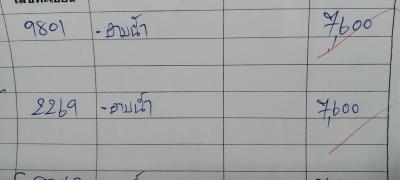 9801 - อาบน้ำ 7,600
2269 - อาบน้ำ 7,600